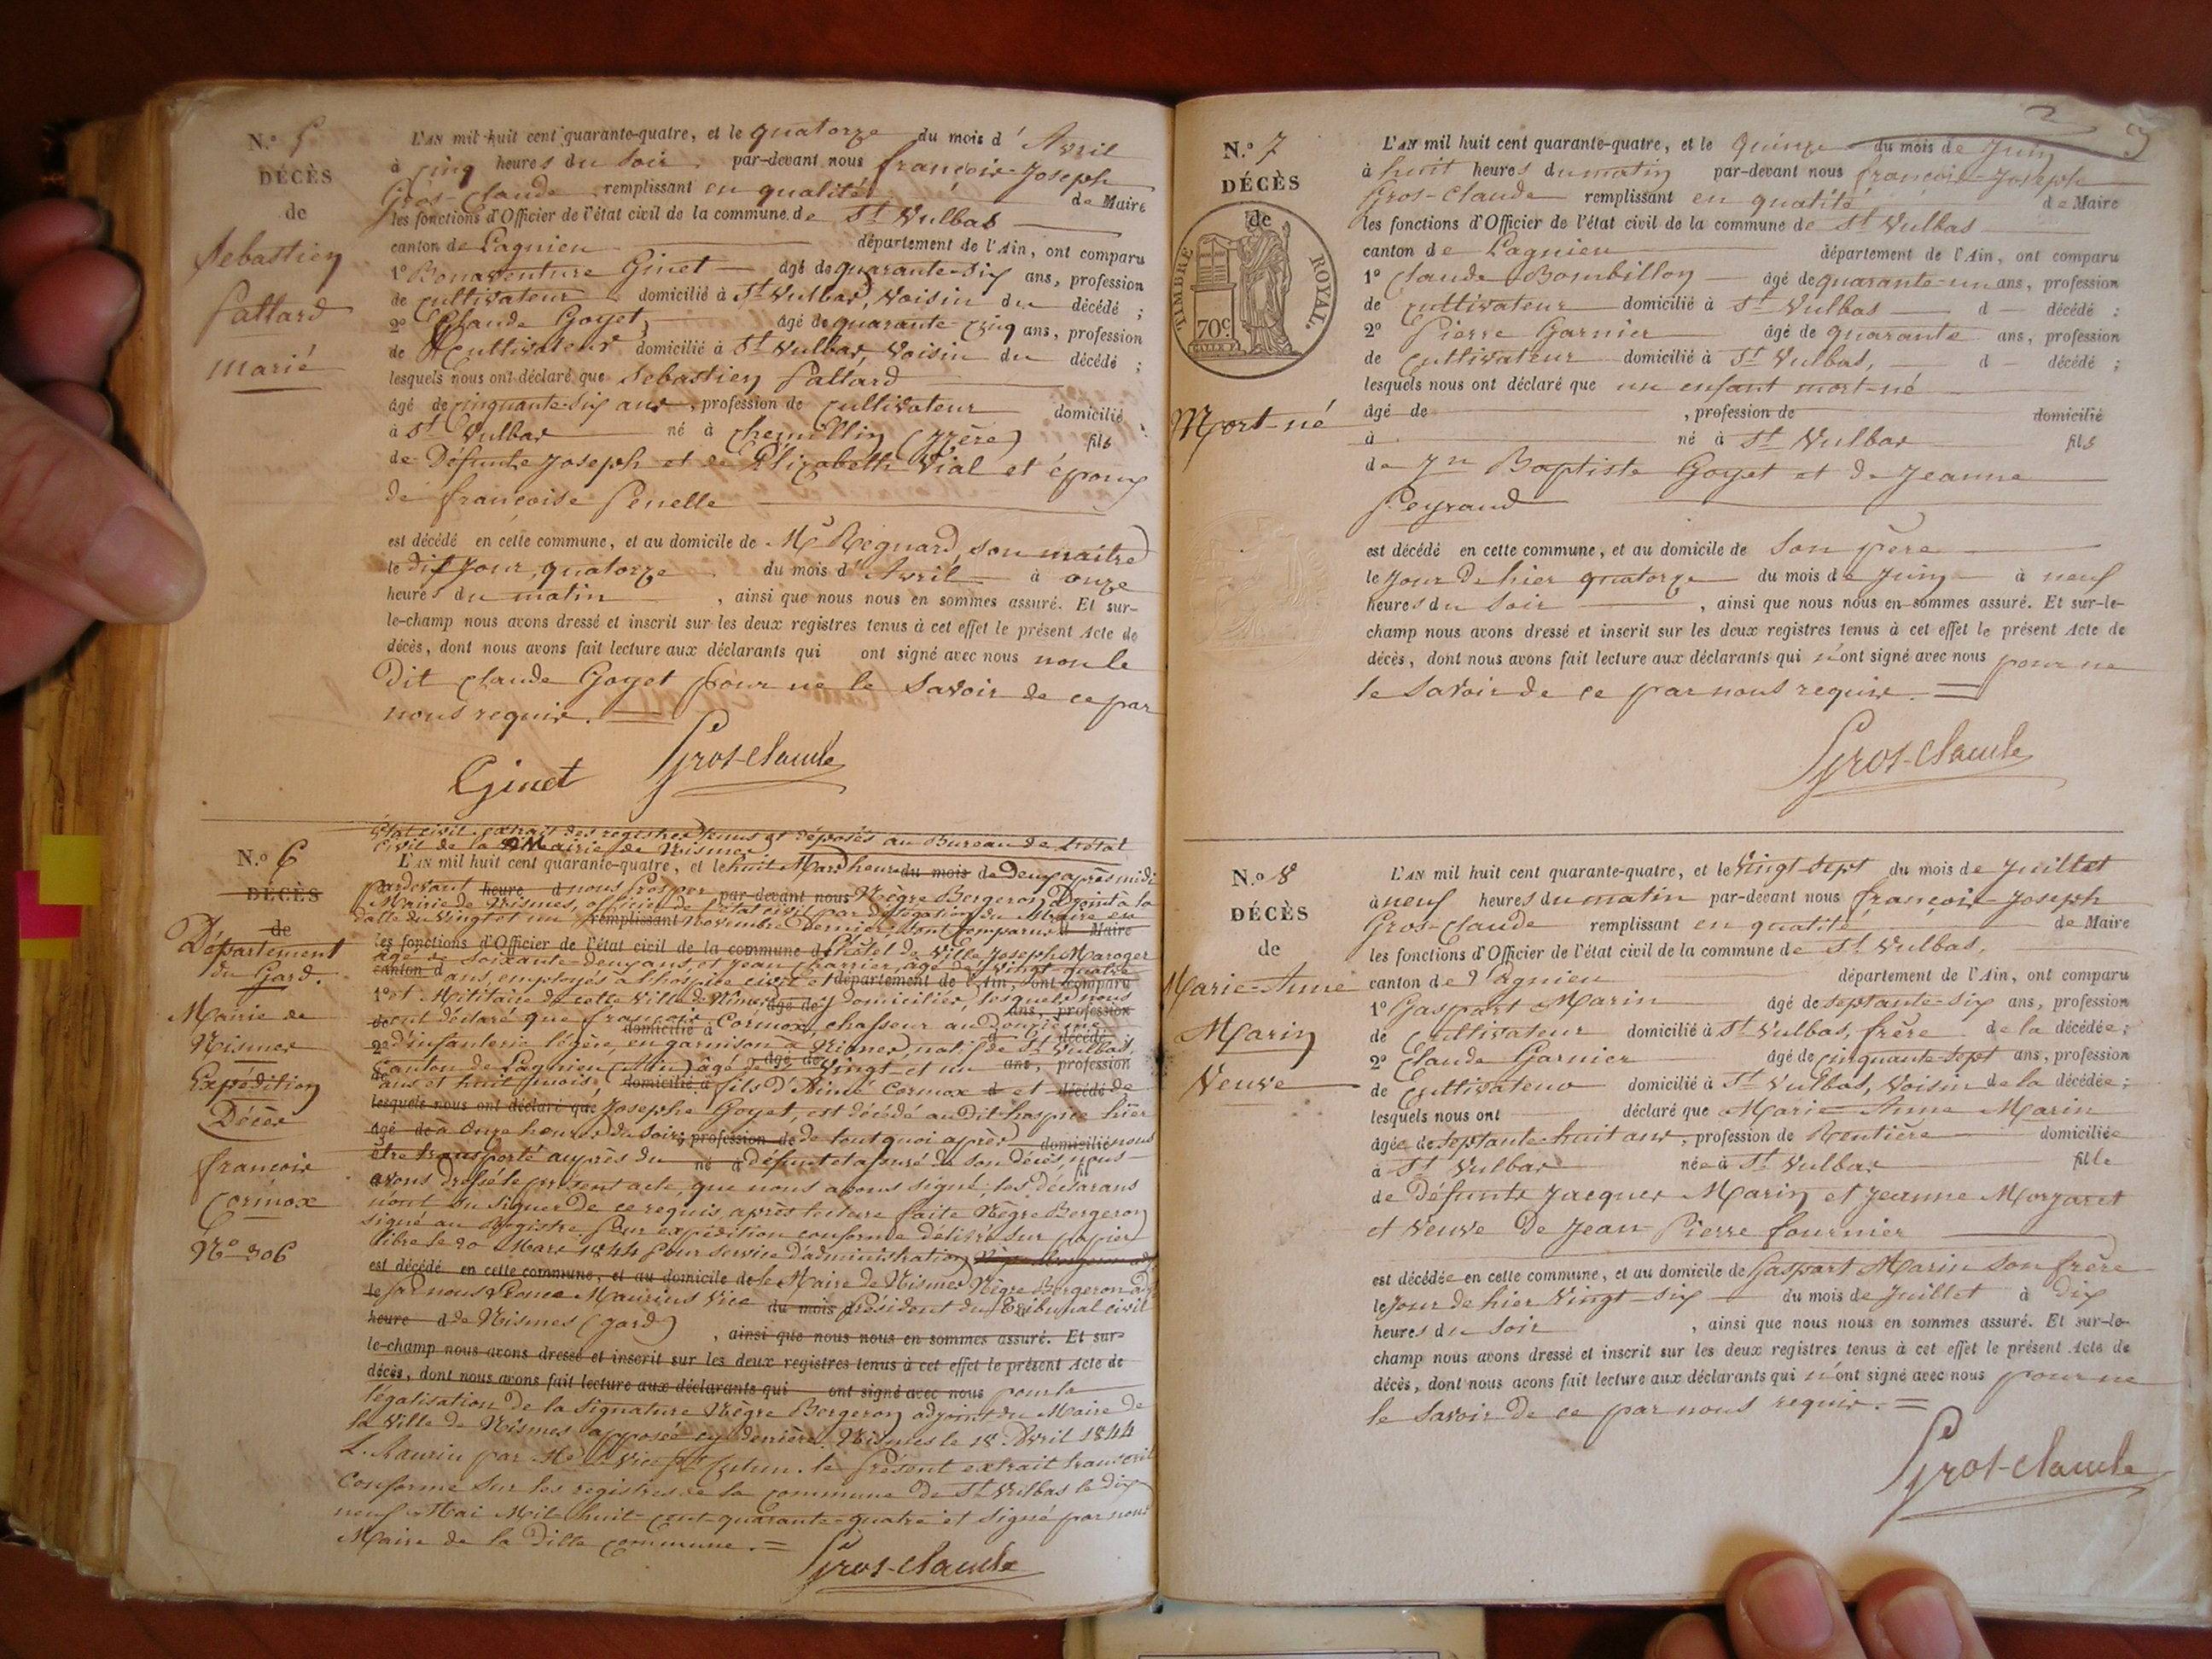 N.o 5
DÉCÈS
de
Sebastien
Pallard
marié
L'AN mil huit cent quarante-quatre, et le quatorze du mois d'Avril
à cinq heures du soir par-devant nous françois-Joseph
Gros-Claude remplissant en qualité de Maire
les fonctions d'Officier de l'état civil de la commune de St Vulbas
canton de Lagnieu département de l'Ain, ont comparu
1o Bonaventure Ginet âgé de quarante-six ans, profession
de cultivateur domicilié à St Vulbas, Voisin du décédé ;
2o Claude Goyet, âgé de quarante-cinq ans, profession
de Cultivateur domicilié à St Vulbas, Voisin du décédé ;
lesquels nous ont déclaré que Sebastien Pallard
âgé de cinquante-six ans, profession de cultivateur domicilié
à St Vulbas né à (Izère) fils
de Défunts Joseph et de Elizabeth Vial et époux
de françoise Penelle
est décédé en cette commune, et au domicile de Mr Regnard, son maitre
le dit Jour, quatorze du mois d'Avril à onze
heures du matin , ainsi que nous nous en sommes assuré. Et sur-
le-champ nous avons dressé et inscrit sur les deux registres tenus à cet effet le présent Acte de
décès, dont nous avons fait lecture aux déclarants qui ont signé avec nous non le
Dit Claude Goyet pour ne le savoir de ce par
nous requis. =
Ginet Gros-Claude
N.o 6
DÉCÈS
de
Département
du Gard.
Mairie de
Nismes
Expédition
Décès
françois
Cormox
No 306
état civil. extrait des registres tenus et déposés au Bureau de l'état
civil de la Mairie de Nismes
L'AN mil huit cent quarante-quatre, et le huit Mars heure du mois de Deux après midi
pardevant heure d nous Prosper par-devant nous Nègre Bergeron adjoint à la
Mairie de Nismes, officier de l'état civil par délégation du Maire en
datte du vingt et un remplissant Novembre dernier sont comparus de Maire
les fonctions d'Officier de l'état civil de la commune de l'hôtel de Ville Joseph Maroger
âgé de soixante-deux ans, et Jean Charrier, âgé de Vingt-quatre
canton d ans, employés à l'hospice civil et département de l'Ain, ont comparu
1o et Militaire de cette Ville de Nismes âgé de y domiciliés, lesquels nous
de ont déclaré que françois Cormox, chasseur au Douzième ans, profession
domicilié à d décédé
2o d'infanterie légère, en garnison à Nismes, natif de St Vulbas,
Canton de Lagnieu (Ain) âgé de vingt et un ans, profession
de ans et huit mois, domicilié à fils d'Aimé Cormox d et décédé de
lesquels nous ont déclaré que Josephe Goyet, est décédé au dit hospice hier
âgé de à onze heures du soir, profession de de tout quoi après domicilié nous
être transporté auprès du né à défunt et assuré de son décès, nous
avons dressé le présent acte, que nous avons signé, les déclarans
n'ont su signer de ce requis, après lecture faite Nègre Bergeron
signé au Registre. Pour expédition conforme délivré sur papier
libre le 20 Mars 1844 pour service d'administration
est décédé en cette commune, et au domicile de le Maire de Nismes Nègre Bergeron adj
le par nous Maurins Vice du mois président du Tribunal civil
heure d de Nismes (gard) , ainsi que nous nous en sommes assuré. Et sur-
le-champ nous avons dressé et inscrit sur les deux registres tenus à cet effet le présent Acte de
décès, dont nous avons fait lecture aux déclarants qui ont signé avec nous pour la
légalisation de la signature Nègre Bergeron adjoint du Maire de
la Ville de Nismes apposée Nismes le 18 Avril 1844
le présent extrait transcrit
Conforme sur les registres de la commune de St Vulbas le dix
neuf Mai Mil huit-cent-quarante-quatre et signé par nous
Maire de la Ditte commune. =
Gros-Claude
N.o 7
DÉCÈS
de
TIMBRE ROYAL.
70c
Mort-né
L'AN mil huit cent quarante-quatre, et le Quinze du mois de Juin
à huit heures du matin par-devant nous françois-Joseph
Gros-Claude remplissant en qualité de Maire
les fonctions d'Officier de l'état civil de la commune de St Vulbas
canton de Lagnieu département de l'Ain, ont comparu
1o Claude Bombillon âgé de quarante-un ans, profession
de cultivateur domicilié à St Vulbas d décédé ;
2o Pierre Garnier âgé de quarante ans, profession
de Cultivateur domicilié à St Vulbas, d décédé ;
lesquels nous ont déclaré que un enfant mort-né
âgé de , profession de domicilié
à né à St Vulbas fils
de Jn Baptiste Goyet et de Jeanne
Peyraud
est décédé en cette commune, et au domicile de son père
le Jour de hier quatorze du mois de Juin à neuf
heures du soir , ainsi que nous nous en sommes assuré. Et sur-le-
champ nous avons dressé et inscrit sur les deux registres tenus à cet effet le présent Acte de
décès, dont nous avons fait lecture aux déclarants qui n'ont signé avec nous pour ne
le savoir de ce par nous requis. =
Gros-Claude
N.o 8
DÉCÈS
de
Marie-Anne
Marin
Veuve
L'AN mil huit cent quarante-quatre, et le Vingt-Sept du mois de Juillet
à neuf heures du matin par-devant nous françois-Joseph
Gros-Claude remplissant en qualité de Maire
les fonctions d'Officier de l'état civil de la commune de St Vulbas,
canton de Lagnieu département de l'Ain, ont comparu
1o Gaspart Marin âgé de septante-six ans, profession
de Cultivateur domicilié à St Vulbas, frère de la décédée ;
2o Claude Garnier âgé de cinquante-sept ans, profession
de Cultivateur domicilié à St Vulbas, Voisin de la décédée ;
lesquels nous ont déclaré que Marie-Anne Marin
âgée de septante-huit ans, profession de Rentière domiciliée
à St Vulbas née à St Vulbas fille
de Défunts Jacques Marin et Jeanne Morgaret
et Veuve de Jean-Pierre fournier
est décédée en cette commune, et au domicile de Gaspart Marin son frère
le Jour de hier Vingt-six du mois de Juillet à Dix
heures du soir , ainsi que nous nous en sommes assuré. Et sur-le-
champ nous avons dressé et inscrit sur les deux registres tenus à cet effet le présent Acte de
décès, dont nous avons fait lecture aux déclarants qui n'ont signé avec nous pour ne
le savoir de ce par nous requis. =
Gros-Claude